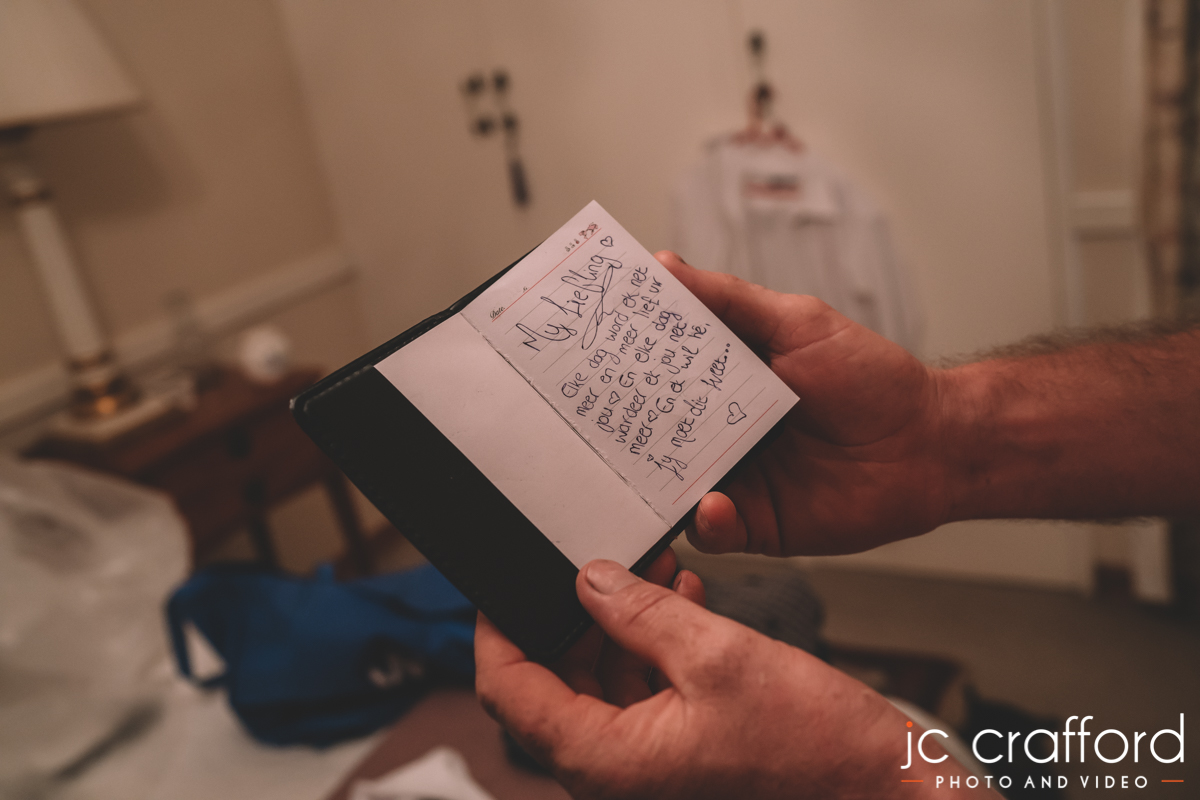 Date:
My Liefling ♡
Elke dag word ek net
meer en meer lief vir
jou ♡ En elke dag
wardeer ek jou net
meer ♡ En ek wil hê,
Jy moet dit weet...
♡
jc crafford
PHOTO AND VIDEO